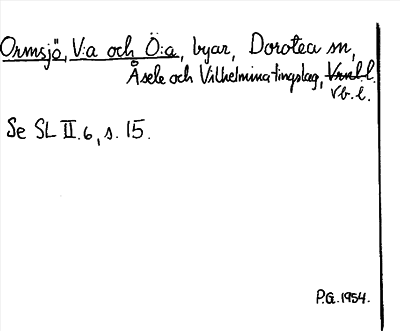 Ormsjö, V:a och Ö:a, byar, Dorotea sn,
Åsele och Vilhelmina tingslag, Vrnl.l.
Vb.l.
Se SL II.6, s. 15.
P.G. 1954.